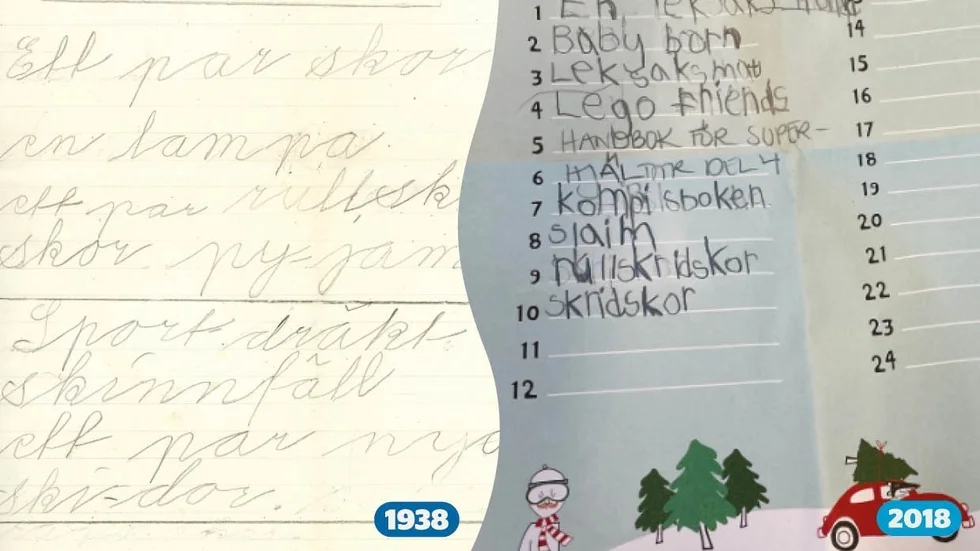 Ett par skor
en lampa.
ett par rullsk
skor py-jam
Sport-dräkt.
skinnfäll
ett par nya
ski-dor.
1938
1 En leksaks
2 Baby born
3 Leksaksmat
4 Lego friends
5 HANDBOK FÖR SUPER-
6 HJÄLTAR DEL 4
7 kompisboken
8 slaim
9 rullskridskor
10 skridskor
11
12
14
15
16
17
18
19
20
21
22
23
24
2018